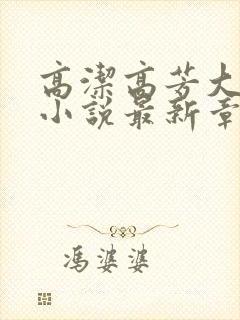 高潔高芳大
小說最新章
馮婆婆